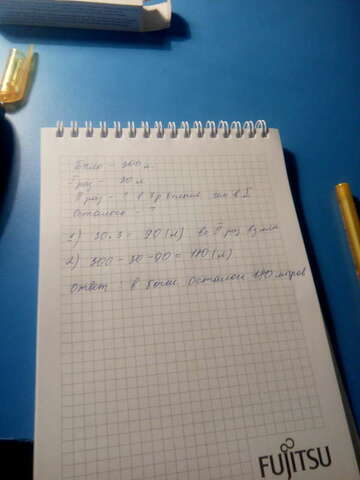 Было - 300 л
I раз - 30 л
II раз - ? в 3 р больше чем в I
Осталось - ?
1) 30 · 3 = 90 (л) во II раз взяли
2) 300 - 30 - 90 = 180 (л)
Ответ: в бочке осталось 180 литров
FUJITSU